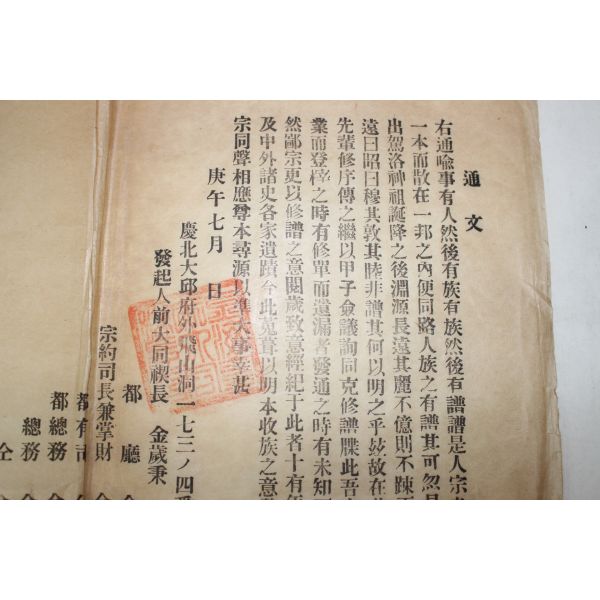 通文
右通喩事有人然後有族有族然後有譜譜是人宗
一本而散在一邦之內便同路人族之有譜其可忽
出駕洛神祖誕降之後淵源長遠其麗不億則不踈
遠曰昭曰穆其敦其睦非譜其何以明之乎玆故在
先輩修序傳之繼以甲子僉議詢同克修譜牒此吾
業而登梓之時有修單而遺漏者發通之時有未知
然鄙宗更以修譜之意閱歲致意經紀于此者十有
及中外諸史各家遺蹟合此蒐葺以明本收族之意
宗同聲相應尊本尋源以準大事幸甚
庚午七月 日
慶北大邱府外飛山洞一七三ノ四
發起人前大同禊長 金歲秉
都廳
宗約司長兼掌財
都有司
都總務
總務
仝